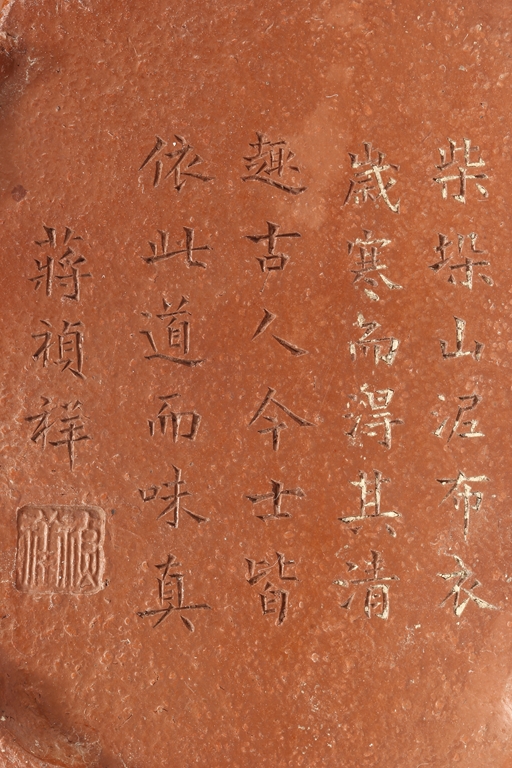 柴垛山泥布衣
歲寒而得其清
趣古人今士皆
依此道而味真
蔣禎祥
禎祥